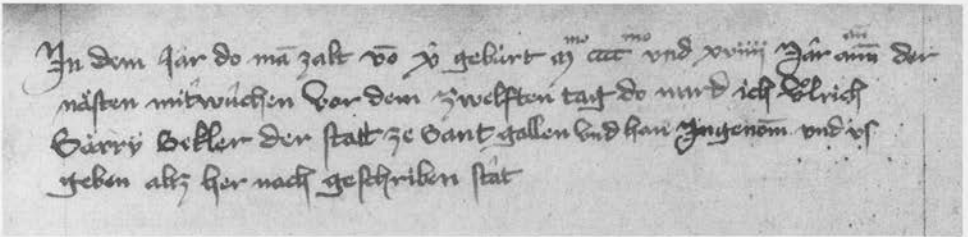 In dem Jar do mā zalt vō xp̄ gebùrt mᵐᵒ ccccᵐᵒ vnd xviiii Jâr an der
nästen mitwùchen vor dem zwelften tag do ward ich Vͦlrich
Särry Sekler der statt ze Sant gallen vnd han Jngenom̄ vnd vs
geben alz her nach geschriben stat